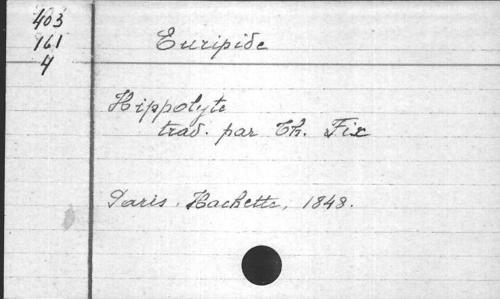 403
161
4
Euripide
Hippolyte
trad. par Th. Fix
Paris. Hachette, 1848.